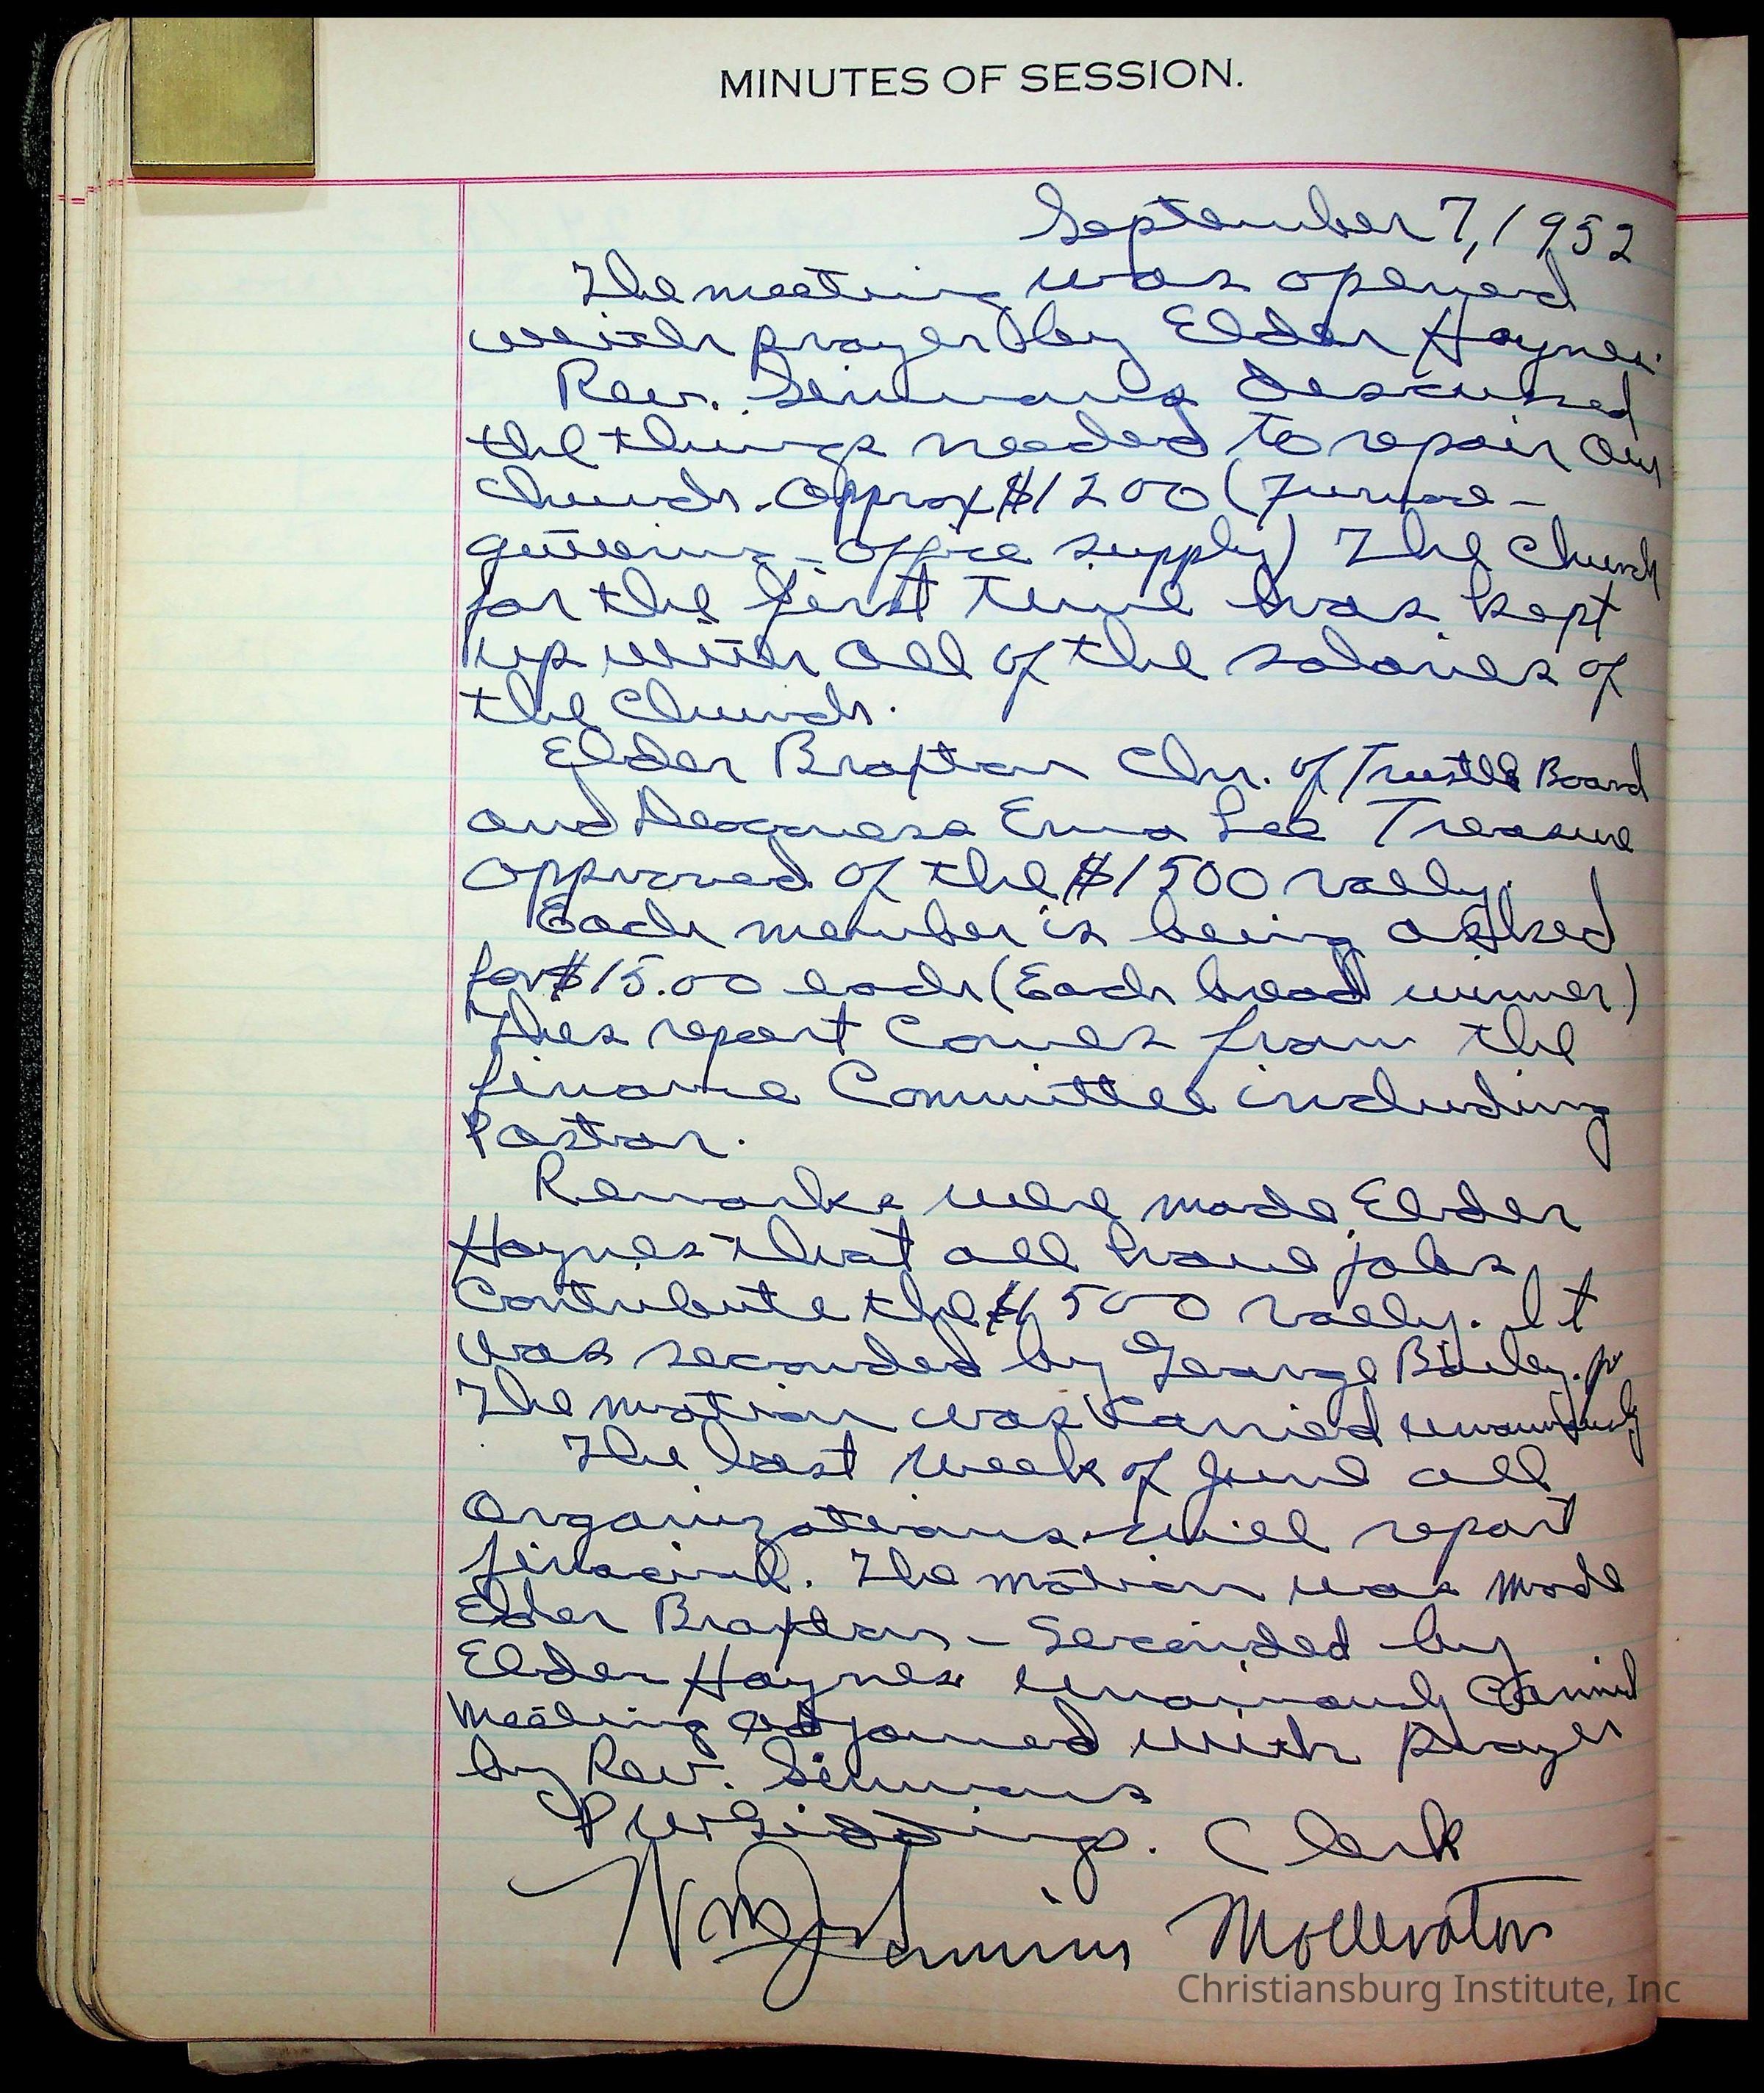 MINUTES OF SESSION.
September 7, 1952
The meeting was opened
with prayer by Elder Haynes.
Rev. Simmons descussed
the things needed to repair our
church. Approx $1200 (Furnace -
guttering - office supply) The Church
for the first time has kept
up with all of the salaries of
the Church.
Elder Braxton Chr. of Trustee Board
and Deaconess Erma Lee Treasure
approved of the $1500 rally.
Each member is being asked
for $15.00 each (Each bread winner)
This report comes from the
finance Committee including
Pastor.
Remarks were made Elder
Haynes that all have jobs
Contribute the $1500 rally. It
was seconded by George Bailey. Jr
The motion was Carried
The last week of June all
Organizations will report
finacial. The motion was made
Elder Braxton - Seconded by
Elder Haynes Carried
Meeting adjourned with prayer
by Rev. Simmons
P W Giddings. Clerk
Simmons Moderator
Christiansburg Institute, Inc